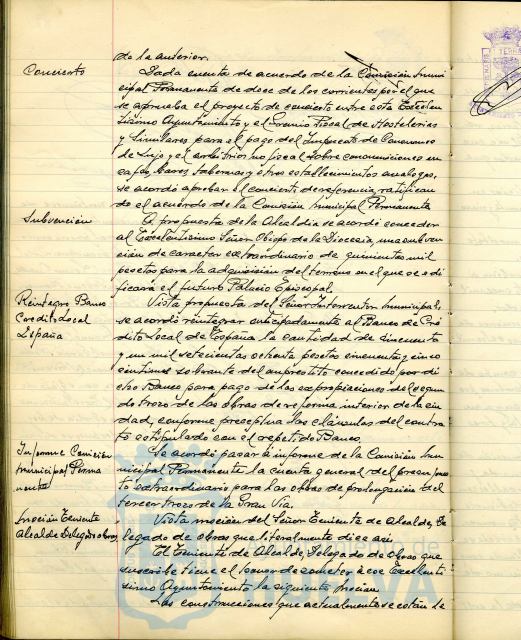 de la anterior.
Concierto
Dada cuenta de acuerdo de la Comisión Muni
cipal Permanente de doce de los corrientes por el que
se aprueba el proyecto de concierto entre este Excelen
tísimo Ayuntamiento y el Gremio Fiscal de Hostelerias
y Similares para el pago del Impuesto de Consumos
de Lujo y el arbitrio no fiscal sobre consumiciones en
cafés, bares, tabernas y otros establecimientos análogos,
se acordó aprobar el concierto de referencia, ratifican
do el acuerdo de la Comisión Municipal Permanente
Subvención
A propuesta de la Alcaldia se acordó conceder
al Excelentísimo Señor Obispo de la Diócesis, una subven
ción de caracter extraordinario de quinientas mil
pesetas para la adquisición del terreno en el que se edi
ficará el futuro Palacio Episcopal.
Reintegro Banco
Credito Local
España
Vista propuesta del Señor Interventor Municipal,
se acordó reintegrar anticipadamente al Banco de Cré
dito Local de España la cantidad de cincuenta
y un mil setecientas ochenta pesetas cincuenta y cinco
centimos sobrante del emprestito concedido por di
cho Banco para pago de las expropiaciones del segun
do trozo de las obras de reforma interior de la ciu
dad, conforme preceptua las cláusulas del contra
to estipulado con el repetido Banco.
Informe Comisión
Municipal Perma
nente
Se acordó pasar a informe de la Comisión Mu
nicipal Permanente la cuenta general del presupues
to extraordinario para las obras de prolongación del
tercer trozo de la Gran Via.
Moción Teniente
Alcalde Delegado obras
Vista moción del Señor Teniente de Alcalde, De
legado de obras que literalmente dice asi:
El Teniente de Alcalde, Delegado de Obras que
suscribe tiene el honor de someter a ese Excelentí
simo Ayuntamiento la siguiente Moción.
Las construcciones que actualmente se están de